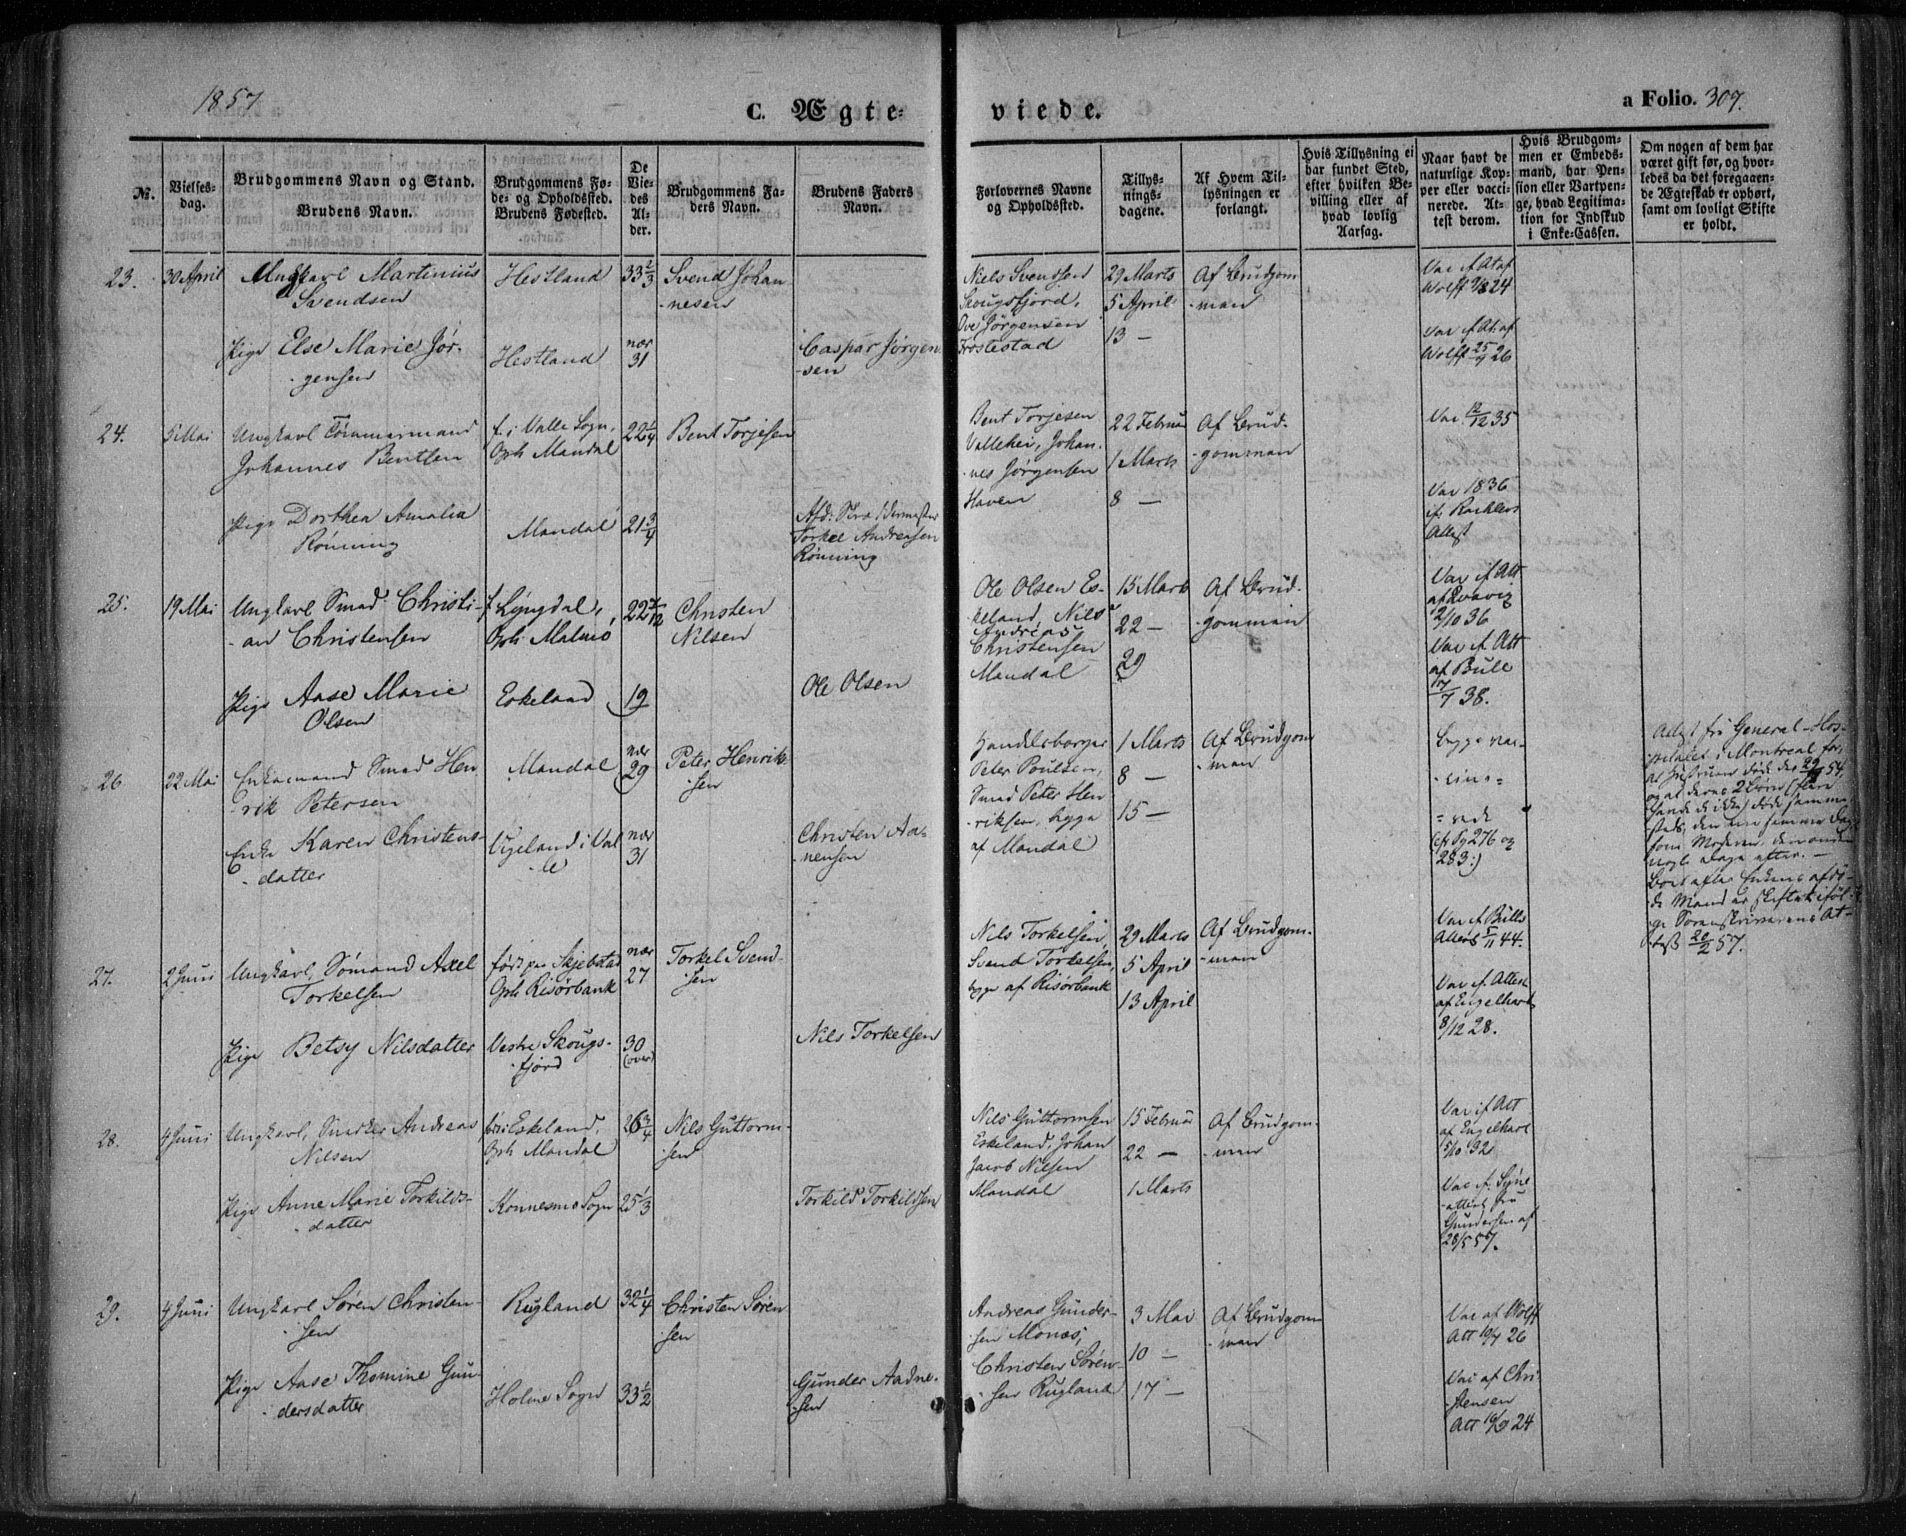 1857
C. Ægteviede.
a Folio. 307.
№.
Vielses-
dag.
Brudgommens Navn og Stand.
Brudens Navn.
Brudgommens Fø-
de- og Opholdssted.
Brudens Fødested.
De
Vie-
des
Al-
der.
Brudgommens Fa-
ders Navn.
Brudens Faders
Navn.
Forlovernes Navne
og Opholdssted.
Tillys-
nings-
dagene.
Af Hvem Til-
lysningen er
forlangt.
Hvis Tillysning ei
har fundet Sted,
efter hvilken Be-
villing eller af
hvad lovlig
Aarsag.
Naar havt de
naturlige Kop-
per eller vacci-
nerede. At-
test derom.
Hvis Brudgom-
men er Embeds-
mand, har Pen-
sion eller Vartpen-
ge, hvad Legitima-
tion for Indskud
i Enke-Cassen.
Om nogen af dem har
været gift før, og hvor-
ledes da det foregaaen-
de Ægteskab er ophørt,
samt om lovligt Skifte
er holdt.
23. 30 April Ungkarl Martinius
Svendsen
Hestland
33 2/3
Svend Johan
nesen
Niels Svendsen
Skougsfjord,
Ove Jørgensen
Frostestad
29 Marts
5 April
13 —
Af Brudgom
-man
Vac. if. At af
Wolff 24
Pige Else Marie Jør-
gensen
Hestland
nær
31
Caspar Jørgen
-sen
Vac. if. At. af
Wolff 26
24. 5 Mai Ungkarl Tömmermand
Johannes Bentsen
f. i Valle Sogn,
Oph. Mandal
22 1/4
Bent Torjesen
Bent Torjesen
Vallehei, Johan-
nes Jørgensen
Haven
22 Februar
1 Marts
8 —
Af Brud-
gomman
Vac. 12/12 35
Pige Dorthea Amalia
Rönning
Mandal
21 3/4
Afd. Skræddermester
Torkel Andreasen
Rönning
Vac 1836
if.
Attest
25. 19 Mai Ungkarl Smed Christi-
an Christensen
f. Lyngdal,
Oph. Malmö
22 7/12
Christen
Nilsen
Ole Olsen Es-
keland, Nils
Andreas
Christensen
Mandal
15 Marts
22 —
29
Af Brud-
gomman
Vac. if. Att
2/10 36
Pige Aase Marie
Olsen
Eskeland
19
Ole Olsen
Vac. if. Att
af Bull
17/7 38.
26 22 Mai Enkemand Smed Hen
rik Petersen
Mandal
nær
29
Peter Henrik-
sen
Handelsborger
Peter Poulsen,
Smed Peter Hen
riksen, begge
af Mandal
1 Marts
8 —
15 —
Af Brudgom
-man
begge vac-
cine-
rede
(cfr Pg 276 og
283.)
Enke Karen Christens-
datter
Vigeland i Val
le
nær
31
Christen Aa-
nensen
Attest fra General-Hos-
pitalet i Montreal for,
at Hustruen døde den 54,
og at deres 2 Börn
döde samme-
steds, den ene samme Dag
som Moderen, den anden
nogle Dage efter. —
Boet efter Enkens afdö-
de Mand er skiftet iföl-
ge Sorenskriverens At-
test 20/2 57.
27. 2 Juni Ungkarl, Sømand Axel
Torkelsen
född paa Skjebstad
Oph. Risörbank
nær
27
Torkel Svend-
sen
Nils Torkelsen,
Svend Torkelsen,
begge af Risörbank
29 Marts
5 April
13 April
Af Brudgom-
-man
Vac if Bulls
Attest 5/11 44.
Pige Betsy Nilsdatter
Vestre Skougs-
fjord
30
(over)
Nils Torkelsen
Vac if. Attest
af Engelhart
8/12 28.
28. 4 Juni Ungkarl, Andreas
Nilsen
Eskeland,
Oph. Mandal
26 3/4
Nils Guttorm-
sen
Nils Guttormsen
Eskeland, Johan
Jacob Nilsen
Mandal
15 Februar
22 —
1 Marts
Af Brudgom-
-man
Vac if Att
af Engelhart
5/10 32
Pige Anne Marie Torkilds-
datter
Konnesmo Sogn
25 1/3
Torkild Torkildsen
Vac. if. Syne-
attest fra
Gundersen af
28/5 57.
29. 4 Juni Ungkarl Søren Christen-
sen
Rugland
32 1/4
Christen Sören
sen
Andreas Gunder-
sen Monæs,
Christen Sören-
sen Rugland
3 Mai
10 —
17 —
Af Brudgom
-man
Vac af Wolff
Att 19/7 26
Pige Aase Thomine Gun-
dersdatter
Holme Sogn
33 1/2
Gunder Aadne-
sen
Vac af Chri-
stensen
Att 24